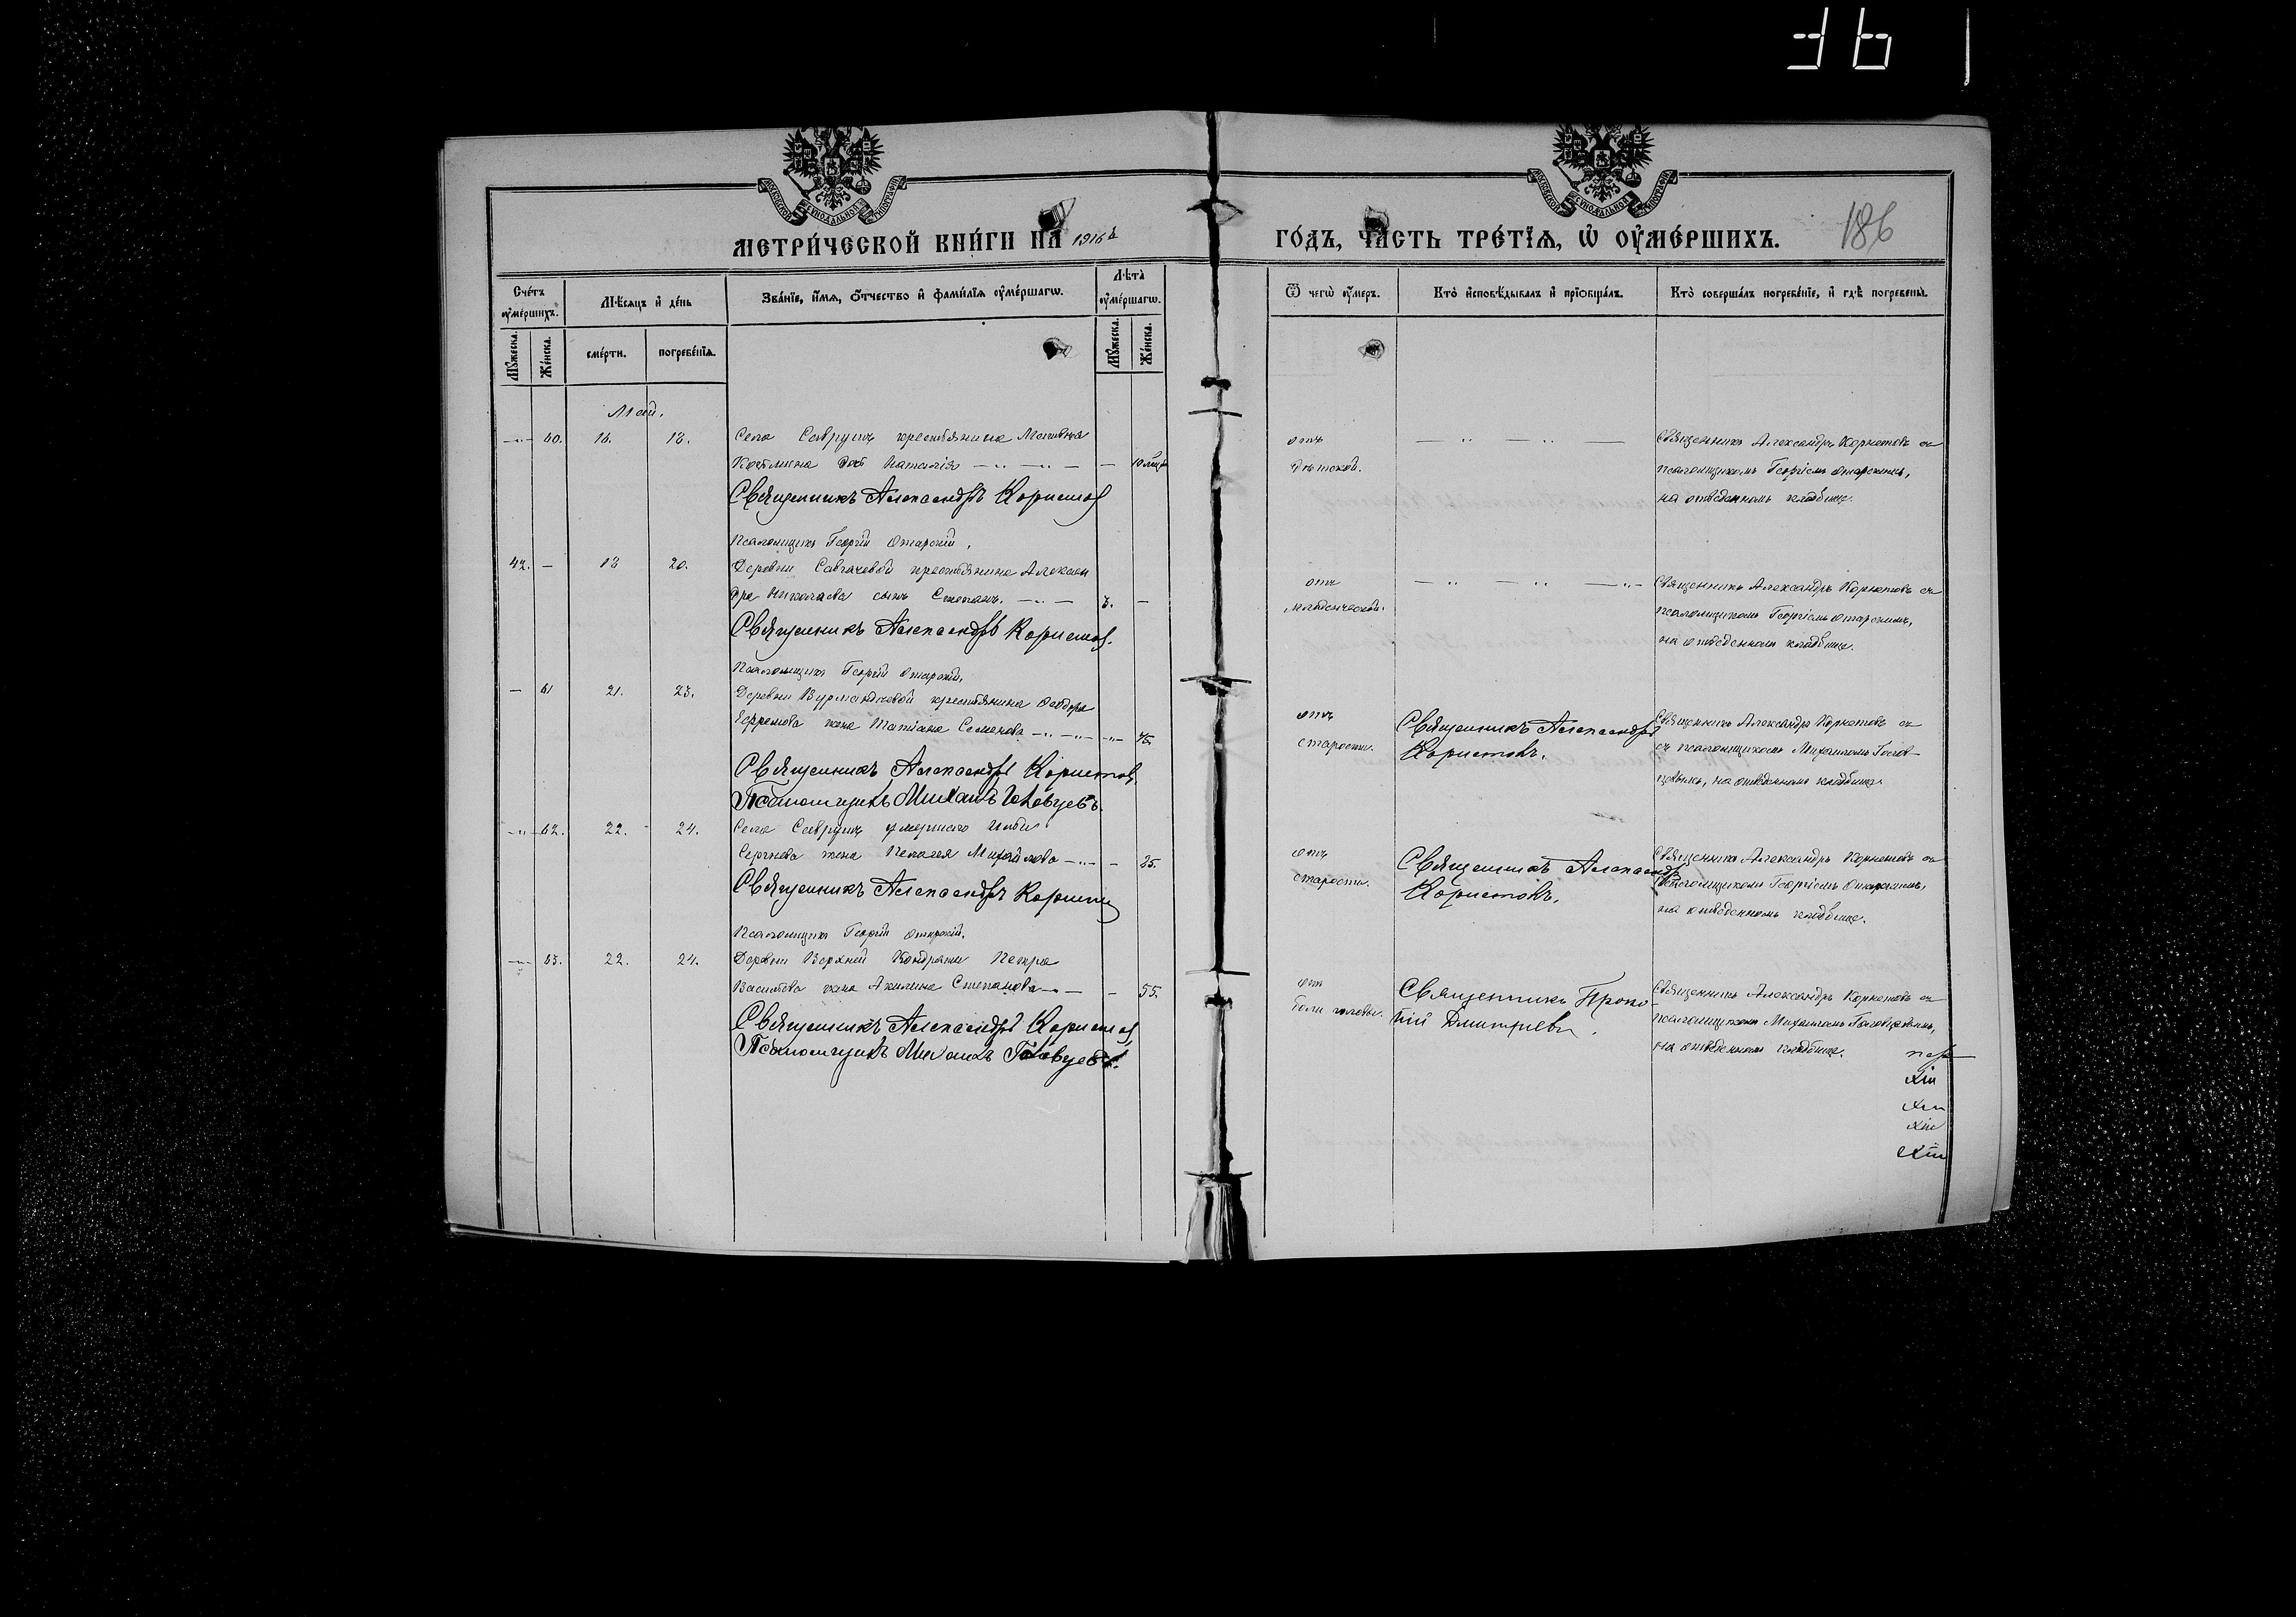 186
МЕТРИ́ЧЕСКОЙ КНИ́ГИ НА 1916 ГО́ДЪ, ЧА́СТЬ ТРЕ́ТІѦ, Ѡ҆ ОУ҆МЕ́РШИХЪ.
Сче́тъ оу҆ме́ршихъ.
Мѣ́сяцъ и҆ де́нь
Зва́нїе, и҆́мѧ, о҆́тчество и҆ фами́лїѧ оу҆ме́ршагѡ.
Лѣ́та оу҆ме́ршагѡ.
Ѿ чегѡ̀ оу҆́меръ.
Кто̀ и҆сповѣ́дывалъ и҆ прїобща́лъ.
Кто̀ соверша́лъ погребе́нїе, и҆ гдѣ̀ погребены̀.
Мꙋ́жеска.
Же́нска.
сме́рти.
погребе́нїѧ.
Мꙋ́жеска.
Же́нска.
Май.
—„— 60. 16. 18. Села Саврушъ крестьянина Матвѣя
Костина дочь Наталія —„— —„— — — 10 мѣс.
Священникъ Александръ Корнетов
Псаломщикъ Георгій Отарскій.
отъ
дѣтской.
— „ — „ —
Священникъ Александръ Корнетовъ съ
псаломщикомъ Георгіемъ Отарскимъ,
на отведенномъ кладбище.
42. — 18 20. Деревни Савгачевой крестьянина Алексан
дра Николаева сынъ Степанъ. —„— — 3. —
Священникъ Александръ Корнетов.
Псаломщикъ Георгій Отарскій.
отъ
младенческой.
— „ — „ —„—
Священникъ Александръ Корнетовъ съ
псаломщикомъ Георгіемъ Отарскимъ,
на отведенномъ кладбище.
— 61 21. 23. Деревни Вурманчеевой крестьянина Ѳеодора
Ефремова жена Татіана Семенова —„— —„— —„— 75.
Священникъ Александръ Корнетов.
Псаломщикъ Михаилъ Головцевъ.
отъ
старости.
Священникъ Александръ
Корнетовъ.
Священникъ Александръ Корнетовъ съ
съ псаломщикомъ Михаиломъ Голов-
цевымъ, на отведенномъ кладбище.
—„— 62. 22. 24. Села Саврушъ умершаго Ильи
Сергѣева жена Пелагея Михайлова —„— — 85.
Священникъ Александръ Корнетов
Псаломщикъ Георгій Отарскій.
отъ
старости.
Священникъ Александръ
Корнетовъ.
Священникъ Александръ Корнетовъ съ
псаломщикомъ Георгіемъ Отарскимъ,
на отведенномъ кладбище.
—„— 63. 22. 24. Деревни Верхней Кондраты Петра
Васильева жена Акилина Степанова —„— — 55.
Священникъ Александръ Корнетов,
Псаломщикъ Михаилъ Головцевъ.
отъ
боли головы.
Священникъ Проко-
пій Дмитріевъ.
Священникъ Александръ Корнетовъ съ
псаломщикомъ Михаиломъ Головцевымъ,
на отведенномъ кладбище.